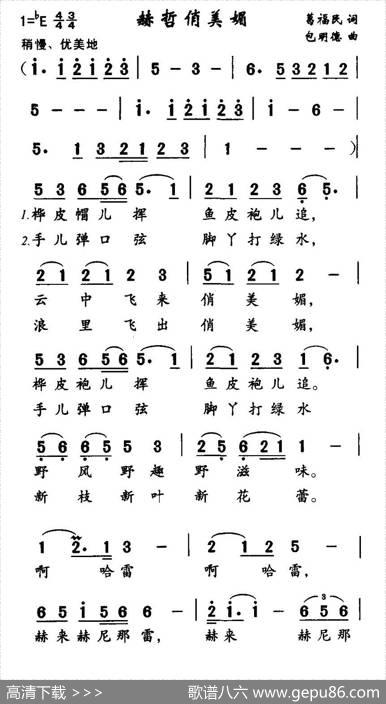 1=♭E 4/4 3/4 赫哲俏美媚 葛福民 词
稍慢、优美地 包明德 曲
(i· i2 i2 i23 | 5 - 3 - | 6· 5 3212 |
5 - - - | i· i2 i2 i23 | i - 6 - |
5· 1 3212 123 | 1 - - - )|
53 656 5· 1 | 21 23 6 5· |
1.桦皮帽儿挥 鱼皮袍儿追,
2.手儿弹口弦 脚丫打绿水,
21 21 2 3 | 51 21 2 - |
云中飞来俏美媚,
浪里飞出俏美媚,
53 656 5· 1 | 21 23 1 6· |
桦皮袍儿挥 鱼皮袍儿追。
手儿弹口弦 脚丫打绿水
56 65 5 3 | 25 621 1 - |
野风野趣野滋味。
新枝新叶新花蕾。
1 2·1 3 - | 2 12 5 - |
啊哈雷 啊哈雷,
65 i55 6 - | 2i· i 656 |
赫来赫尼那雷, 赫来 赫尼那
高清下载 >>> 歌谱八六 www.gepu86.com